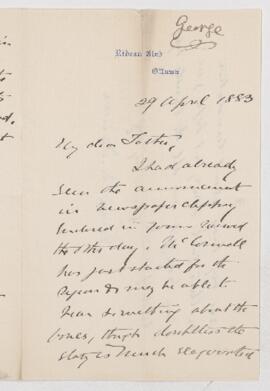 George
Rideau Club
Ottawa
29 April 1883
My dear Father,
I had already
seen the announcement
in newspaper clipping
enclosed in yours received
the other day. McConnell
has just started for the
region & may be able to
hear something about the
bones, though doubtless the
story is much exaggerated